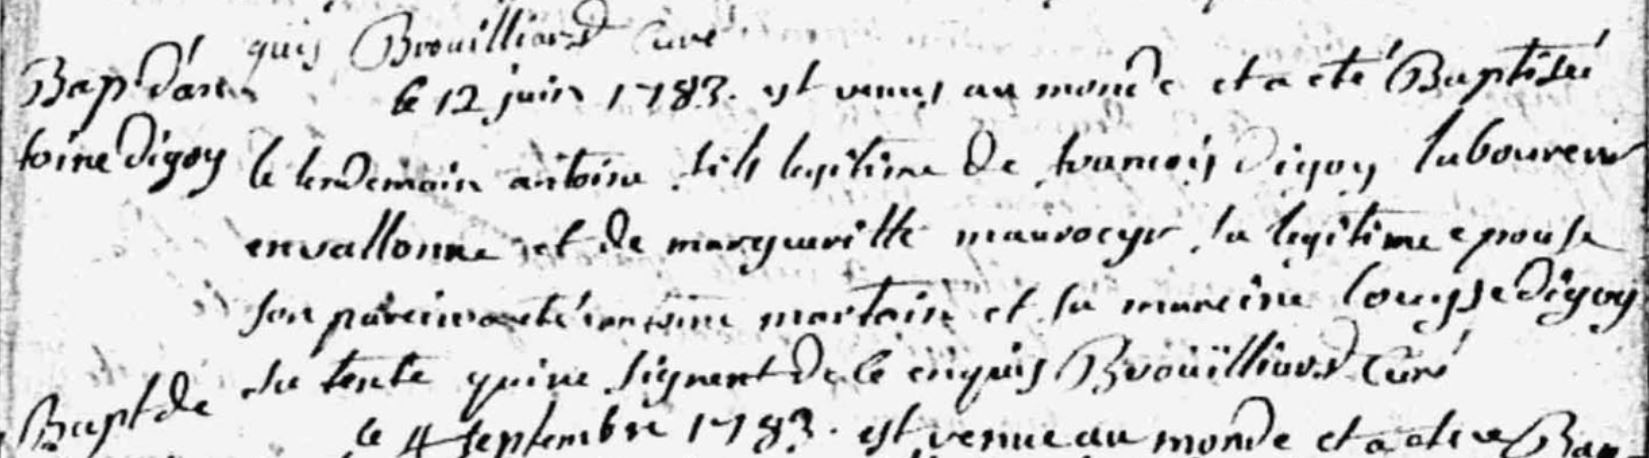 quis Brouilliard Curé
Bapt d'an
le 12 juin 1783. est venus au monde et a eté Baptisé
toine digoy
le lendemain antoine fils legitime de francois digoy laboureur
envallonne et de margueritte maurocyr sa legitime epouse
son parein a eté antoine martain et sa mareine louyse digoy
sa tente qui ne signent de ce enquis Brouïlliard Curé
Bapt de
le 4 septembre 1783. est venue au monde et a ete Bap